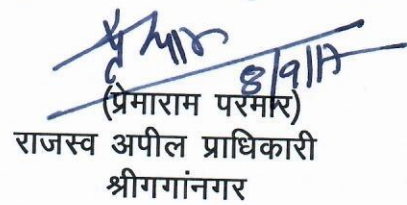 8/9/17
(प्रेमाराम परमार)
राजस्व अपील प्राधिकारी
श्रीगगांनगर